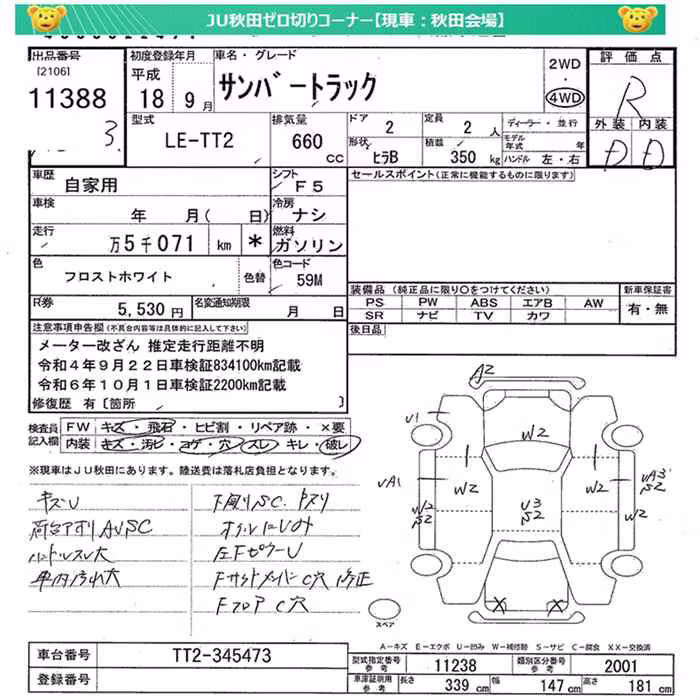 JU秋田ゼロ切りコーナー【現車：秋田会場】
出品番号 初度登録年月 車名・グレード 2WD 評価点
[2106] 平成 サンバートラック
11388 18 9月 4WD R
3 型式 排気量 ドア 2 定員 2人 ディーラー・並行 外装 内装
LE-TT2 660 CC 形状 ヒラB 積載 350 kg モデル年式 年 D D
ハンドル 左・右
車歴 自家用 シフト F5 セールスポイント(正常に機能するものに限ります)
車検 年 月( 日) 冷房 ナシ
走行 万5千071 km * 燃料 ガソリン
色 フロストホワイト 色替 色コード 59M
装備品 (純正品に限り○をつけてください) 新車保証書
R券 5,530円 名変通知期限 月 日 PS PW ABS エアB AW 有・無
SR ナビ TV カワ
注意事項申告欄(不具合内容等は具体的に記入して下さい) 後日品
メーター改ざん 推定走行距離不明
令和4年9月22日車検証834100km記載
令和6年10月1日車検証2200km記載
修復歴 有[箇所 ]
検査員記入欄 FW キズ・飛石・ヒビ割・リペア跡・×要
内装 キズ・汚ビ・コゲ・穴・スレ・キレ・破レ
※現車はJU秋田にあります。陸送費は落札店負担となります。
A2
U1
W2
UA1 W2 W2 UA3
W2 S2 U3 S2 W2 S2 S2
X X
キズU 下廻りSC.
荷台アオリAUSC
ハンドルスレ大 左FピラーU
車内汚れ大 FサイドメンバーC穴 修正
FフロアC穴
スペア
A-キズ E-エクボ U-凹み W-補修跡 S-サビ C-腐食 XX-交換済
車台番号 TT2-345473 型式指定番号 参考 11238 類別区分番号 参考 2001
登録番号 車庫証明用 参考 長さ 339cm 幅 147cm 高さ 181cm